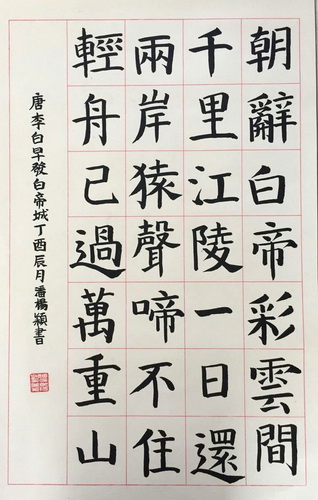 朝辭白帝彩雲間
千里江陵一日還
兩岸猿聲啼不住
輕舟已過萬重山
唐李白早發白帝城丁酉辰月潘楊潁書